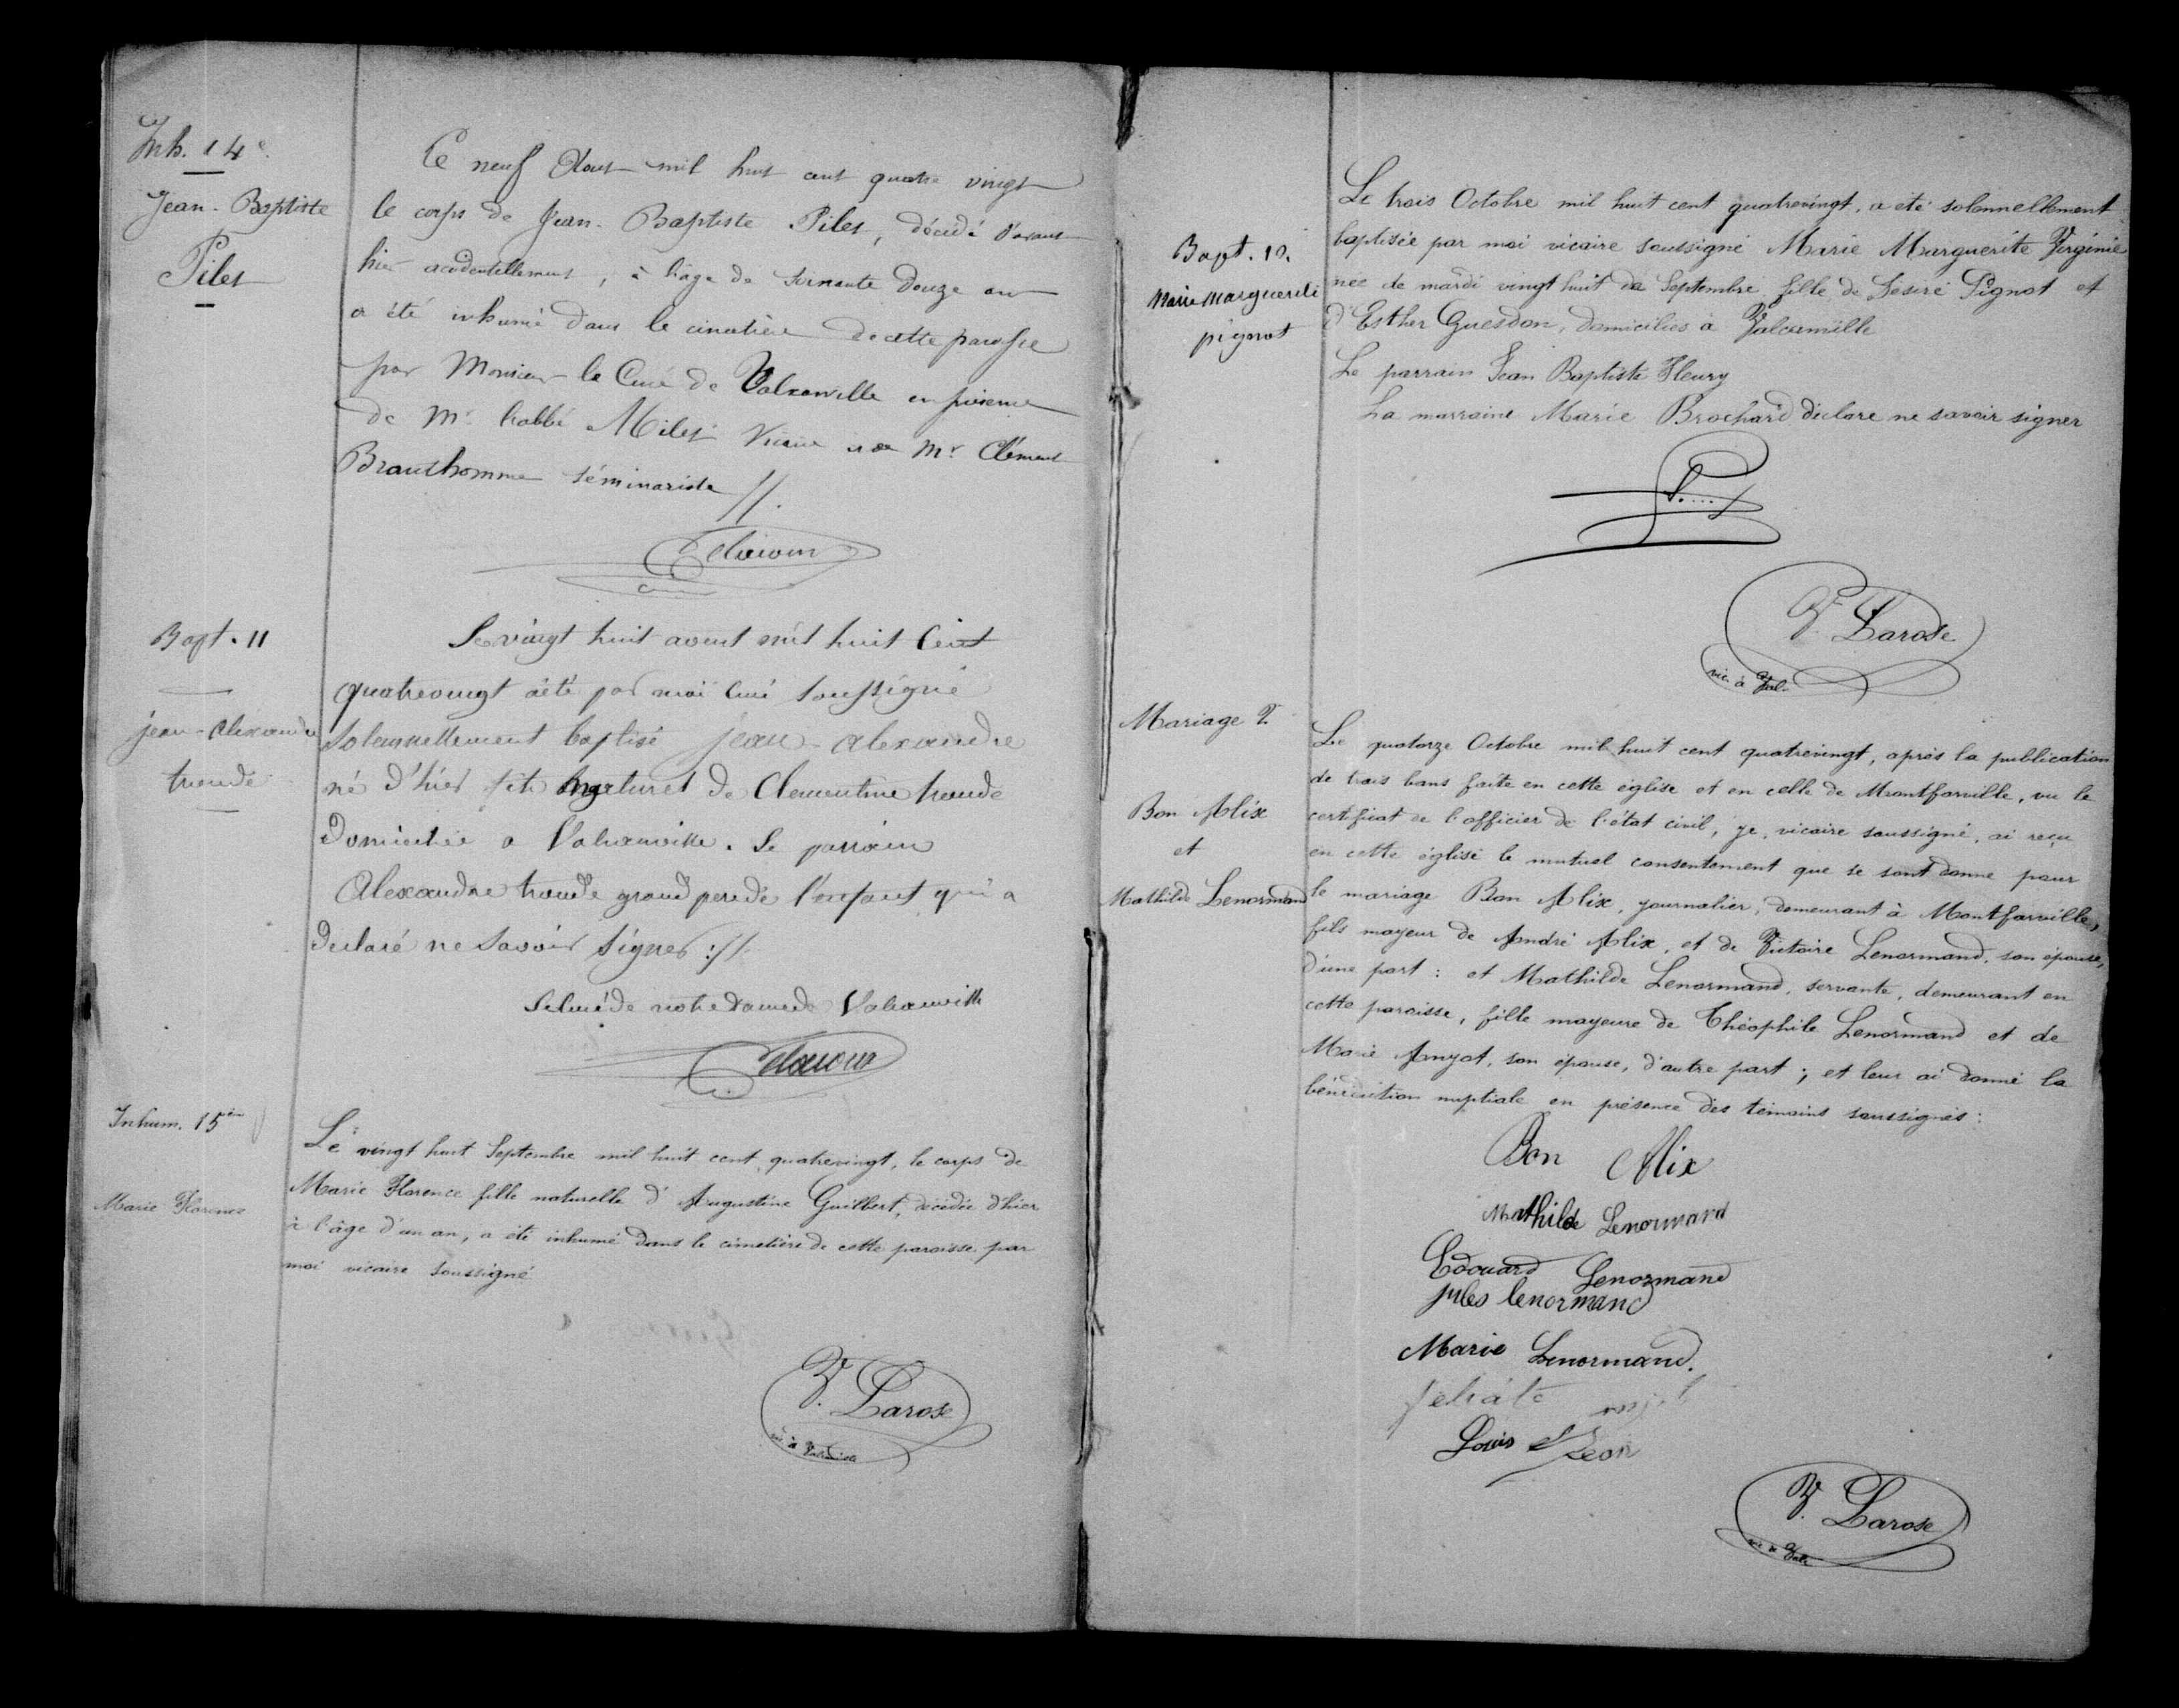 Inh. 14e
Jean-Baptiste
Piles
Le neuf Aout mil huit cent quatre vingt
le corps de Jean-Baptiste Piles, décédé d'avant
hier accidentellement, à l'âge de soixante douze ans
a été inhumé dans le cimetière de cette paroisse
par Monsieur le Curé de Valcanville en présence
de Mr l'abbé Miles Vicaire et de Mr Clément
Brauthomme séminariste //.
Bapt. 11
jean-alexandre
troude
Le vingt huit aout mil huit Cent
quatrevingt a été par moi Curé soussigné
solennellement baptisé jean-alexandre
né d'hier fils naturel de Clementine troude
Domiciliée a Valcanville. Le parrain
Alexandre troude grand pere de l'enfant qui a
declaré ne savoir signer ://.
Le curé de notre dame de Valcanville
Inhum. 15em
Marie Florence
Le vingt huit Septembre mil huit cent quatrevingt, le corps de
Marie Florence fille naturelle d'Augustine Guilbert, décédée d'hier
à l'âge d'un an, a été inhumé dans le cimetière de cette paroisse par
moi vicaire soussigné
V. Larose
vic. à
Bapt. 12.
Marie Marguerite
pignot
Le trois Octobre mil huit cent quatrevingt, a été solennellement
baptisée par moi vicaire soussigné Marie Marguerite Virginie
née de mardi vingt huit de Septembre fille de Désiré Pignot et
d'Esther Guesdon, domiciliés à Valcanville
Le parrain Jean Baptiste Fleury
La marraine Marie Brochard déclare ne savoir signer
V. Larose
vic. à Val.
Mariage 2
Bon Alix
et
Mathilde Lenormand
Le quatorze Octobre mil huit cent quatrevingt, après la publication
de trois bans faite en cette église et en celle de Montfarville, vu le
certificat de l'officier de l'état civil, je, vicaire soussigné, ai reçu
en cette église le mutuel consentement que se sont donné pour
le mariage Bon Alix, journalier, demeurant à Montfarville,
fils mayeur de André Alix, et de Victoire Lenormand, son épouse,
d'une part : et Mathilde Lenormand, servante, demeurant en
cette paroisse, fille mayeure de Théophile Lenormand et de
Marie Anyot, son épouse, d'autre part ; et leur ai donné la
bénédiction nuptiale en présence des témoins soussignés :
Bon Alix
Mathilde Lenormand
Edouard Lenormand
jules lenormand
Marie Lenormand.
Louis Léon
V. Larose
vic. à Val.